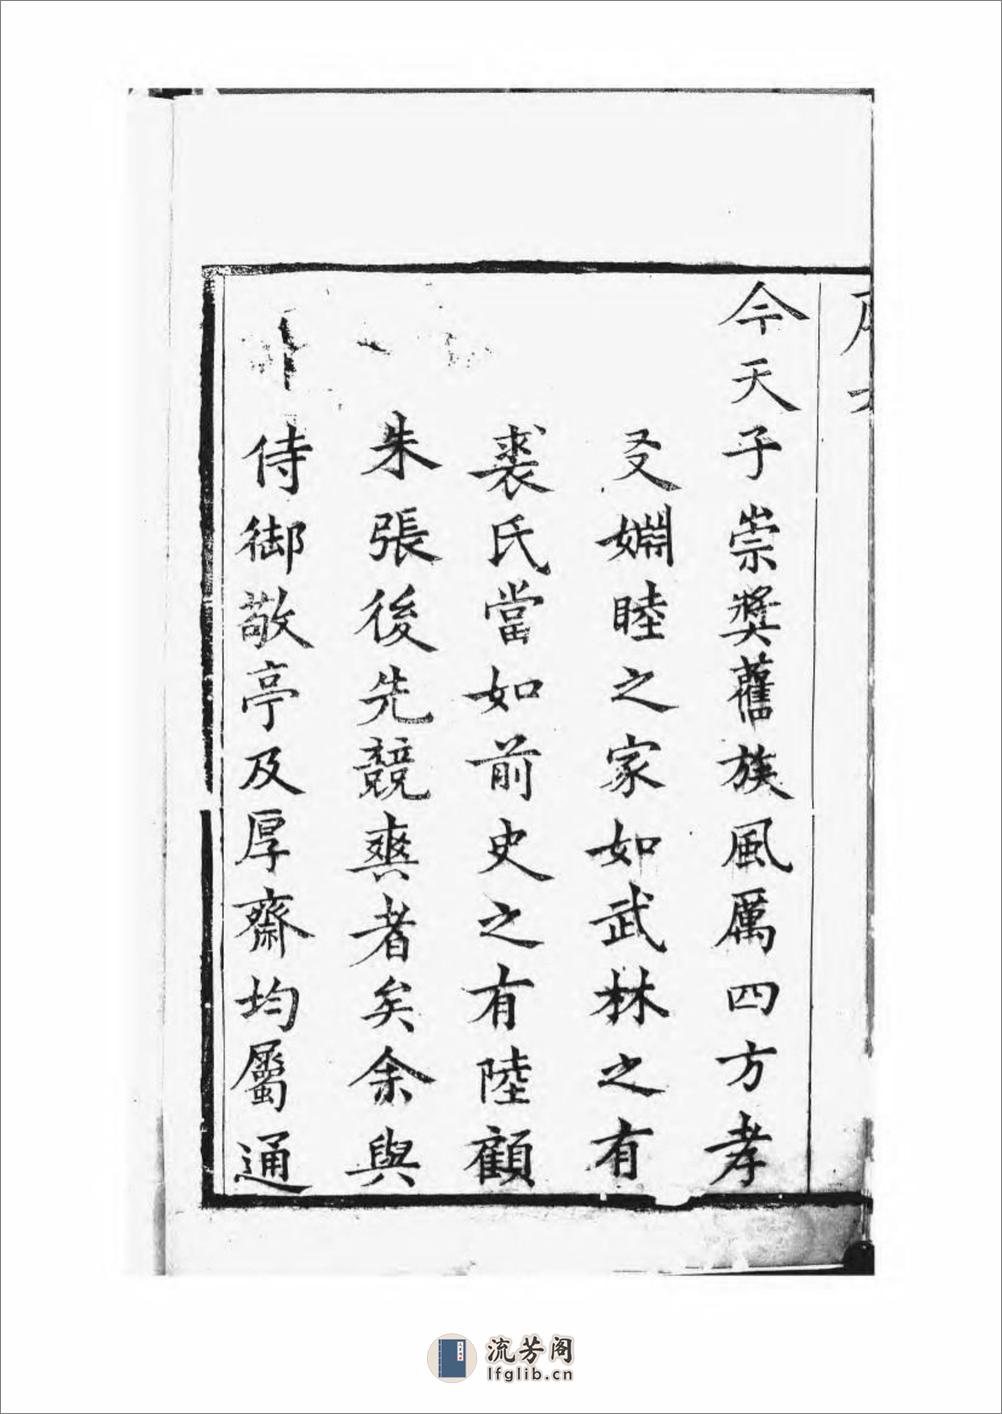 今天子崇奬舊族風厲四方孝
友婣睦之家如武林之有
裘氏當如前史之有陸顧
朱張後先競爽者矣余與
侍御敬亭及厚齋均屬通
流芳阁
lfglib.cn